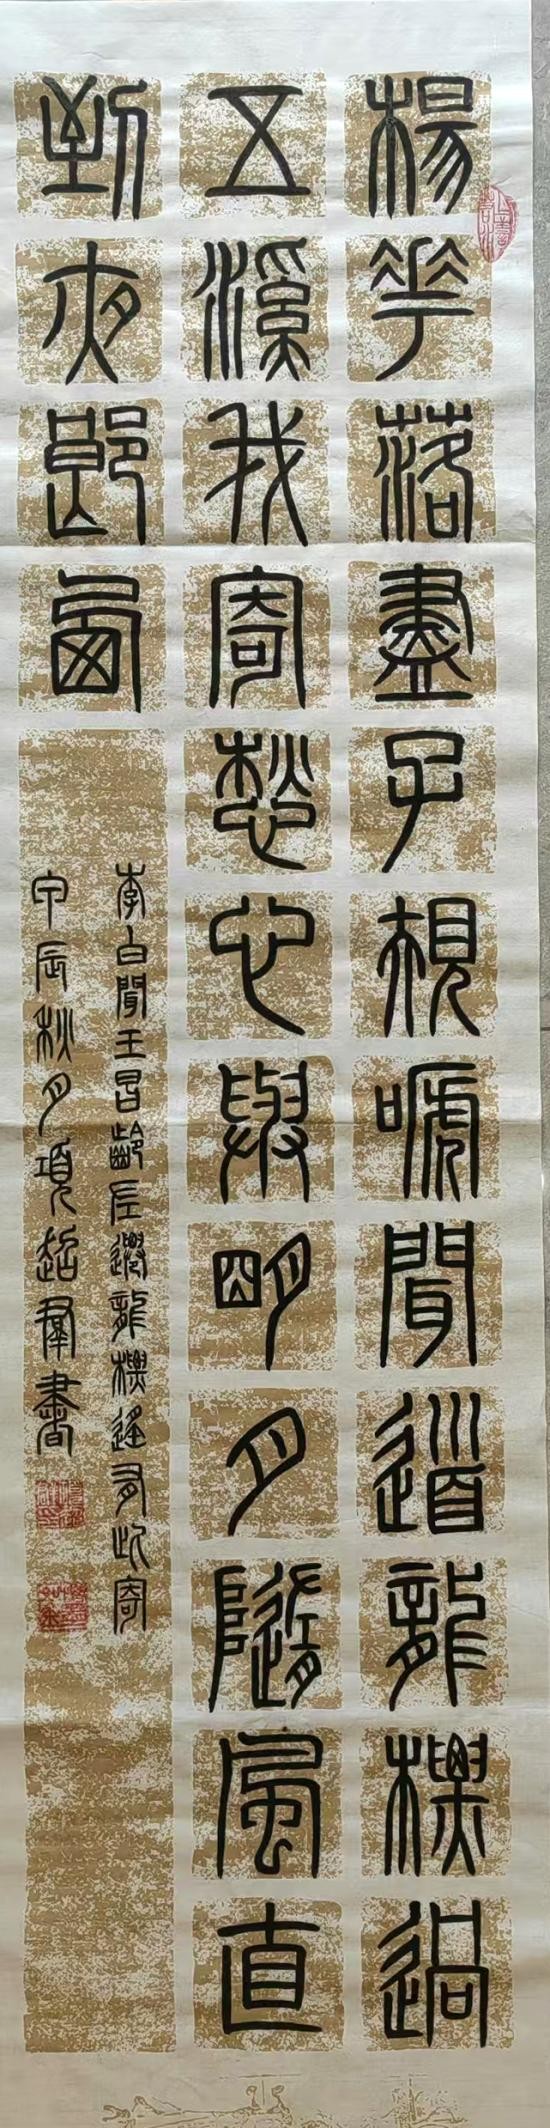 楊花落盡子規嗁聞道龍標過
五溪我寄愁心與朙月隨風直
到夜郎西
李白聞王昌齡左遷龍標遙有此寄
甲辰秋月項超群書